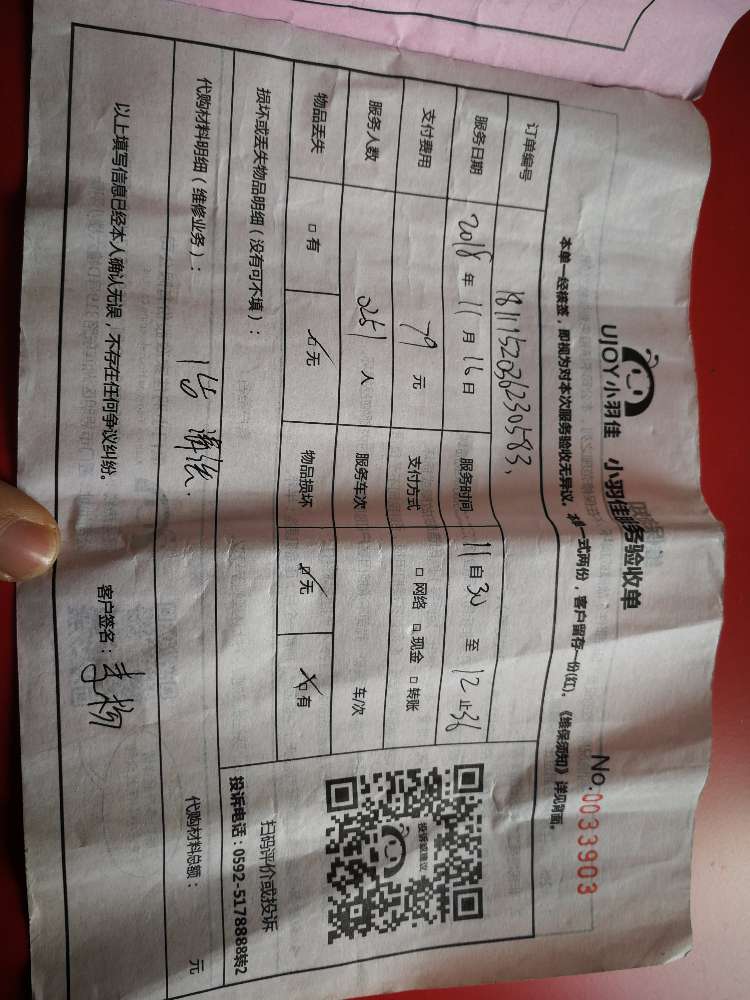 UJOY小羽佳
No.0033903
本单一经核签，即视为对本次服务验收无异议。
一式两份，客户留存一份(红)。《维保须知》详见背面。
订单编号
服务日期 2018 年 11 月 16 日 服务时间 11 自 30 至 12 止 36
支付费用 79 元 支付方式 □ 网络 □ 现金 □ 转账
服务人数 人 服务车次 车/次
物品丢失 □ 有 □ 无 物品损坏 □ 无 □ 有
损坏或丢失物品明细（没有可不填）：
扫码评价或投诉
投诉电话：0592-5178888转2
代购材料明细（维修业务）：
代购材料总额： 元
以上填写信息已经本人确认无误，不存在任何争议纠纷。
客户签名：李杨
投诉或建议